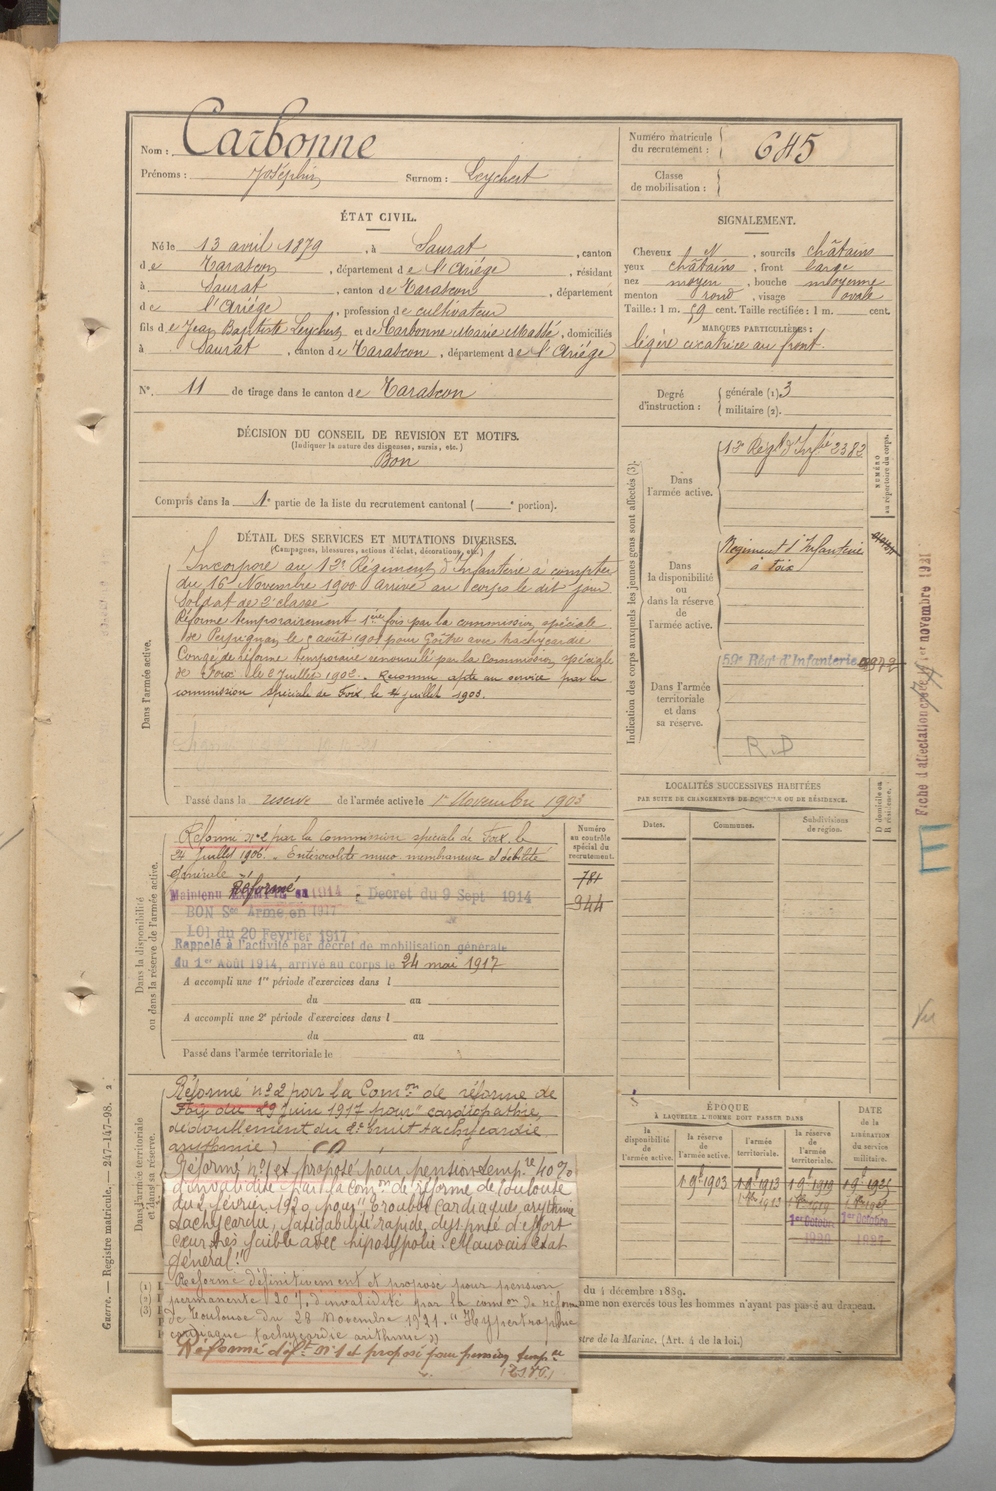 Nom : Carbonne
Prénoms : Joséphin Surnom : Leychert
Numéro matricule du recrutement : 645
Classe de mobilisation :
ÉTAT CIVIL.
Né le 13 avril 1879, à Saurat, canton
de Tarascon, département de l'Ariége, résidant
à Saurat, canton de Tarascon, département
de l'Ariége, profession de cultivateur
fils de Jean Baptiste Leychert et de Carbonne Marie Massé, domiciliés
à Saurat, canton de Tarascon, département de l'Ariége
N°. 11 de tirage dans le canton de Tarascon
SIGNALEMENT.
Cheveux et N, sourcils châtains
yeux châtains, front large
nez moyen, bouche moyenne
menton rond, visage ovale
Taille : 1 m. 59 cent. Taille rectifiée : 1 m. cent.
MARQUES PARTICULIÈRES :
légère cicatrice au front.
Degré d'instruction : générale (1) 3
militaire (2).
DÉCISION DU CONSEIL DE REVISION ET MOTIFS.
(Indiquer la nature des dispenses, sursis, etc.)
Bon
Compris dans la 1e partie de la liste du recrutement cantonal ( e portion).
DÉTAIL DES SERVICES ET MUTATIONS DIVERSES.
(Campagnes, blessures, actions d'éclat, décorations, etc.)
Dans l'armée active.
Incorporé au 12e Régiment d'Infanterie à compter
du 16 Novembre 1900 Arrivé au corps le dit jour
Soldat de 2e classe
Réformé temporairement 1ère fois par la commission spéciale
de Perpignan le août 1901 pour Goître avec tachycardie
Congé de réforme temporaire renouvelé par la Commission spéciale
de Foix le 2 Juillet 1902. Reconnu apte au service par la
commission spéciale de Foix le 4 juillet 1903.
Passé dans la reserve de l'armée active le 1er Novembre 1903
Indication des corps auxquels les jeunes gens sont affectés (3).
NUMÉRO au répertoire du corps.
Dans l'armée active.
12e Régt d'Infie 2382
Dans la disponibilité ou dans la réserve de l'armée active.
Régiment d'Infanterie
à Foix
Dans l'armée territoriale et dans sa réserve.
59e Régt d'Infanterie
R.D
Fiche d'affectation 1er novembre 1921
LOCALITÉS SUCCESSIVES HABITÉES
PAR SUITE DE CHANGEMENTS DE DOMICILE OU DE RÉSIDENCE.
Dates. Communes. Subdivisions de region. D domicile ou R résidence.
Dans la disponibilité ou dans la réserve de l'armée active.
Numéro au contrôle spécial du recrutement.
781
944
Réformé n° 2 par la Commission spéciale de Foix le
24 Juillet 1906. Entérocolite muco membraneuse débilité
générale
Maintenu Réformé en 1914 Décret du 9 Sept 1914
BON Sce Armé en 1917
LOI du 20 Fevrier 1917
Rappelé à l'activité par décret de mobilisation générale
du 1er Août 1914, arrivé au corps le 24 mai 1917
A accompli une 1re période d'exercices dans l
du au
A accompli une 2e période d'exercices dans l
du au
Passé dans l'armée territoriale le
Dans l'armée territoriale et dans sa réserve.
Réformé n° 2 par la Comon de réforme de
Foix du 29 Juin 1917 pour "cardiopathie,
dédoublement du 2e bruit tachycardie
arythmie)
Réformé n° 1 et proposé pour pension tempre 40 %
d'invalidité par la Comon de réforme de Toulouse
du 2 février 1920, pour "Troubles cardiaques, arythmie
tachycardie, fatigabilité rapide, dyspnée d'effort
cœur très faible avec hiposypolie. Mauvais état
général."
Réformé définitivement et proposé pour pension
permanente 20 % d'invalidité par la comon de réforme
de Toulouse du 28 Novembre 1921. "Hypertrophie
cardiaque tachycardie arithmie"
Réformé déft n° 1 et proposé pour pension tempre
ÉPOQUE
À LAQUELLE L'HOMME DOIT PASSER DANS
la disponibilité de l'armée active. la réserve de l'armée active. l'armée territoriale. la réserve de l'armée territoriale.
DATE de la LIBÉRATION du service militaire.
1 9e 1903 1 9e 1913 1 9e 1919 1 9e 1925
1er Octobre 1er Octobre
du 4 décembre 1889.
mme non exercés tous les hommes n'ayant pas passé au drapeau.
stre de la Marine. (Art. 4 de la loi.)
Guerre. — Registre matricule. — 247-147-98.
Vu